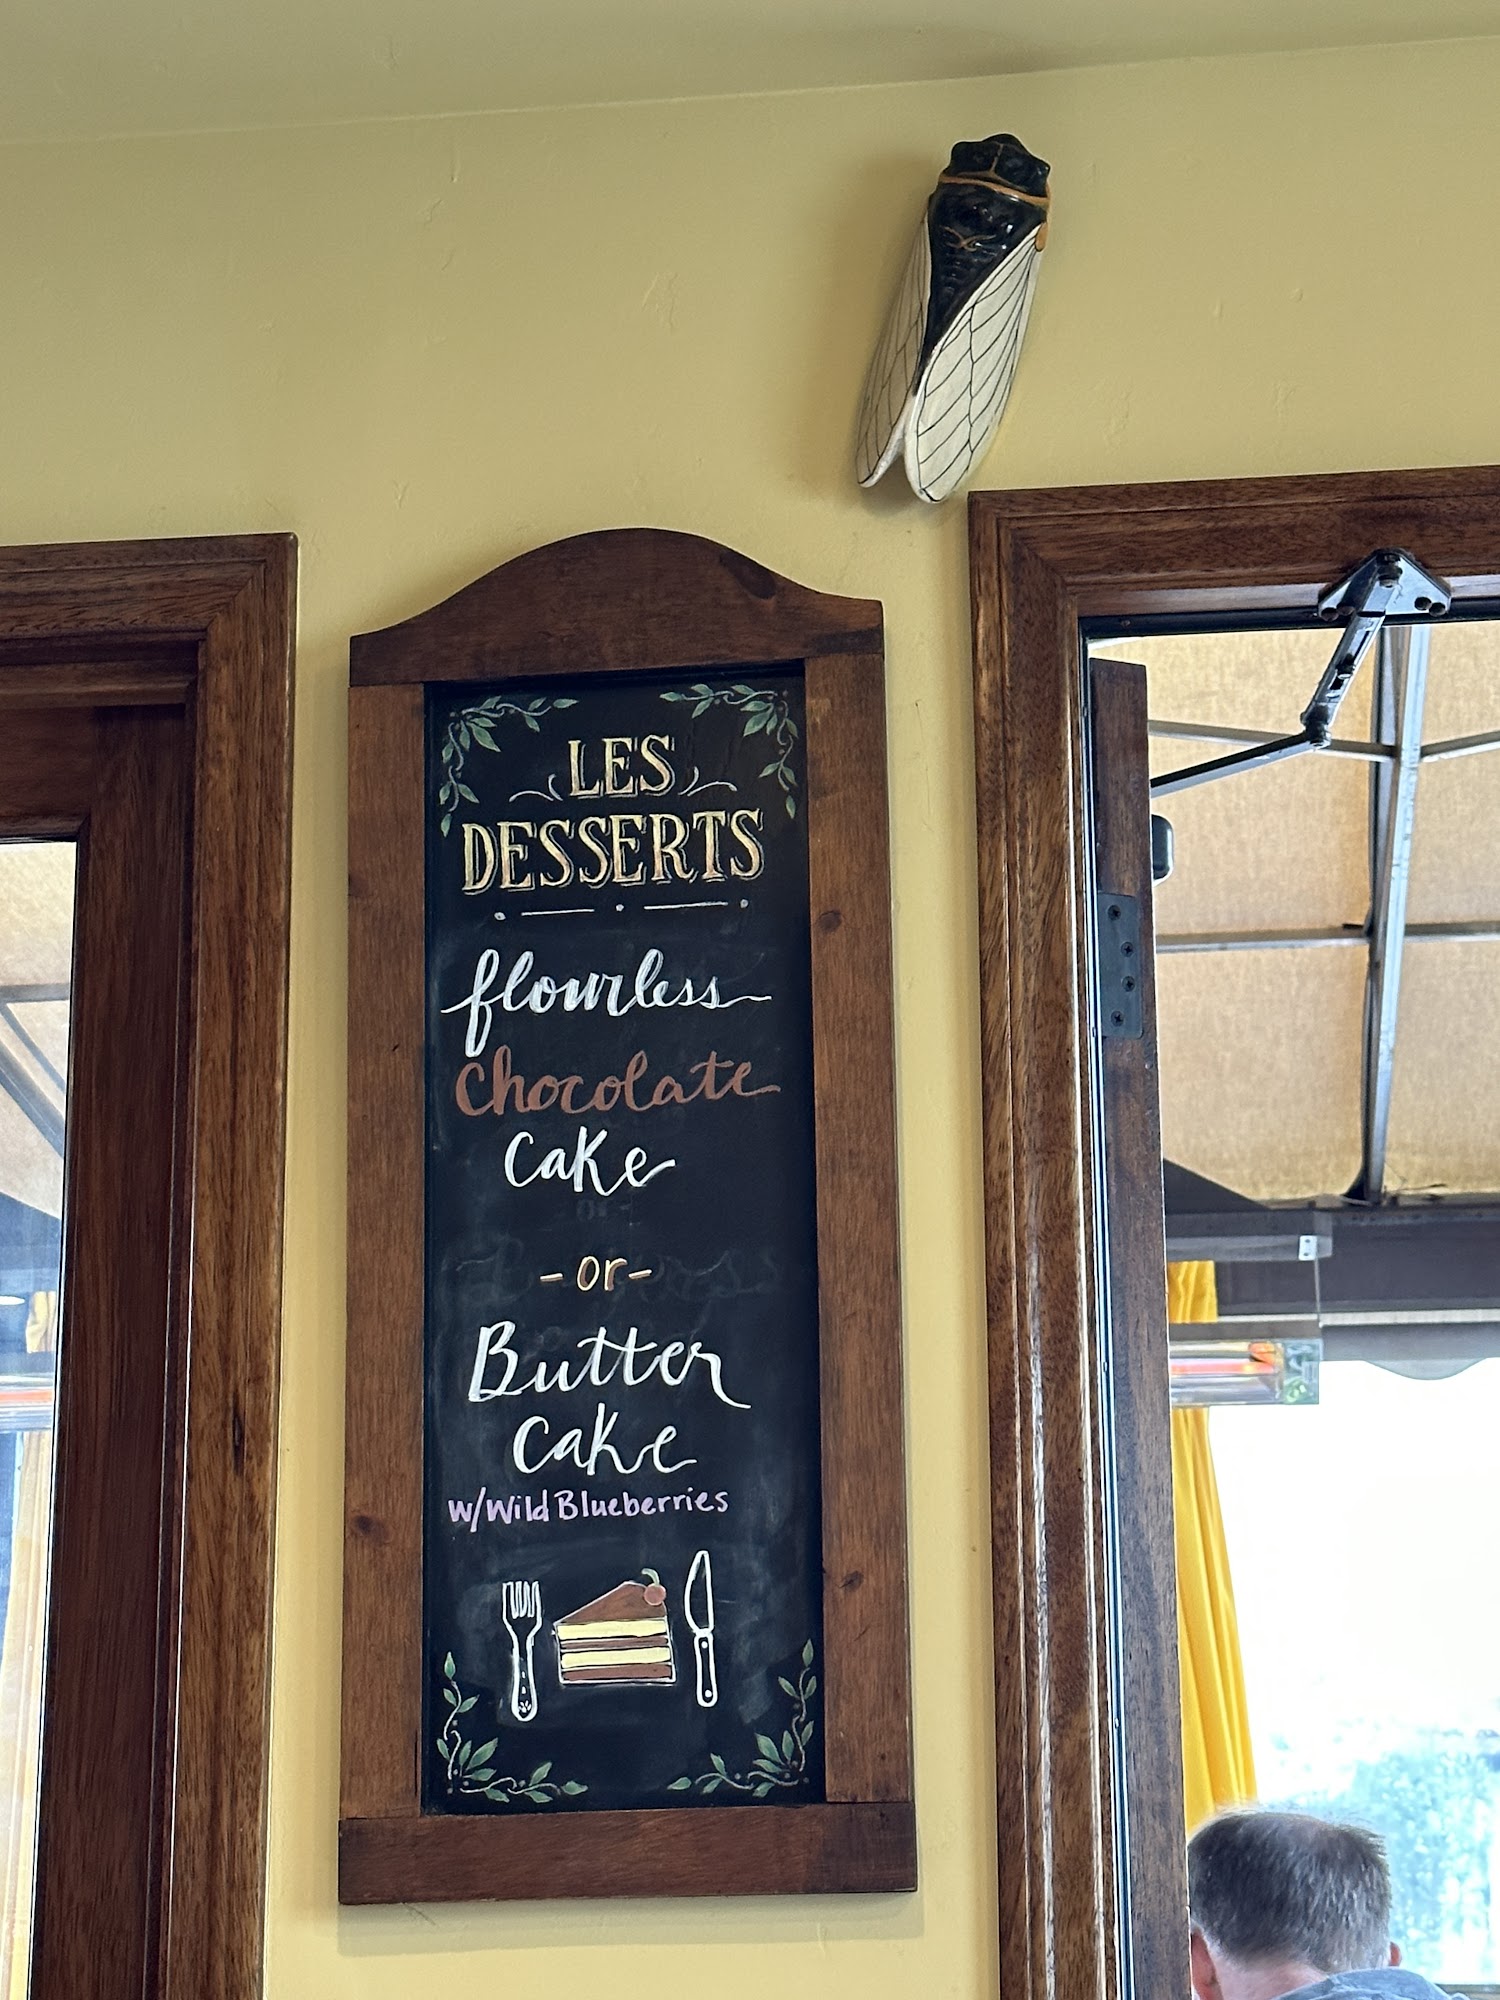 LES
DESSERTS
flourless
Chocolate
Cake
-or-
Butter
Cake
w/Wild Blueberries